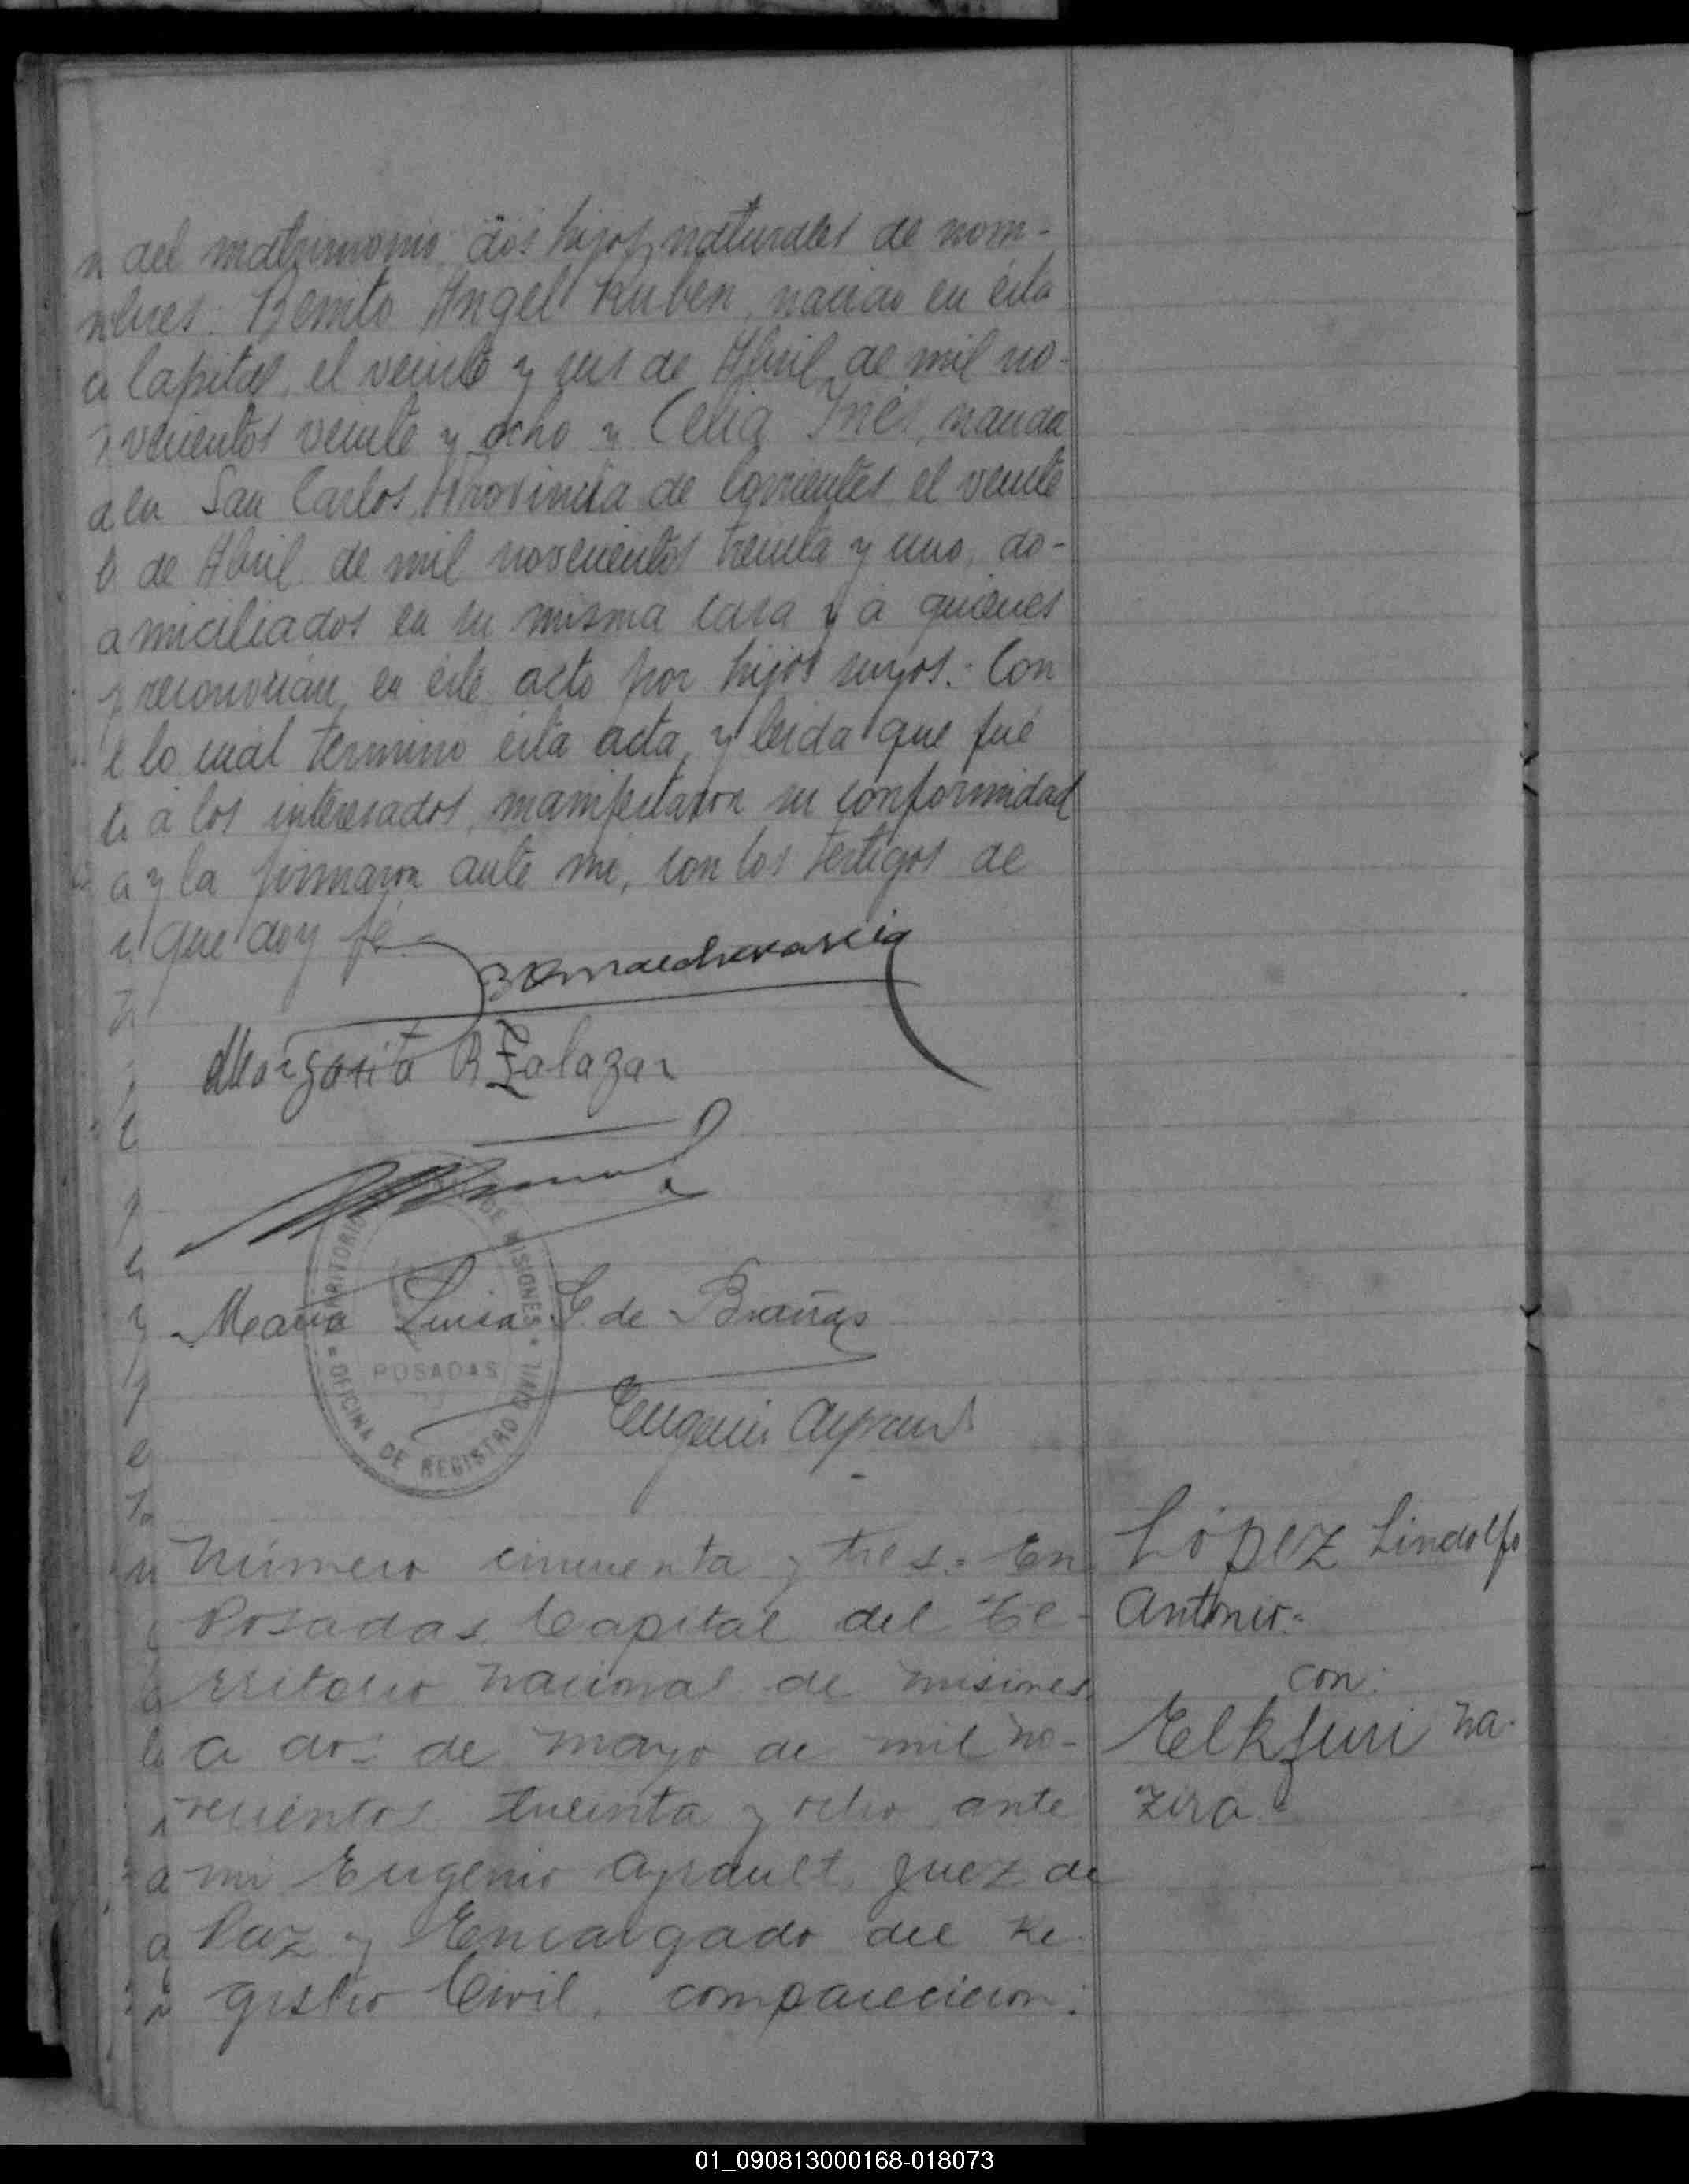 del matrimonio dos hijos naturales de nom-
bres: Benito Angel Ruben, nacido en ésta
Capital, el veinte y seis de Abril de mil no-
vecientos veinte y ocho y Celia Inés, nacida
en San Carlos, Provincia de Corrientes el veinte
de Abril de mil novecientos treinta y uno, do-
miciliados en su misma casa y á quienes
reconocian en éste acto por hijos suyos.- Con
lo cual termino ésta acta, y leida que fué
á los interesados, manifestaron su conformidad
y la firmaron ante mi, con los testigos de
que doy fé.-
Margarita R Zalazar
TERRITORIO DE MISIONES
Maria Luisa G. de Brañas
POSADAS
OFICINA DE REGISTRO CIVIL
Eugenio Ayrault
Número cincuenta y tres.= En
Posadas, Capital del Te-
rritorio Nacional de Misiones
a dos de Mayo de mil no-
vecientos treinta y ocho, ante
mi Eugenio Ayrault, Juez de
Paz y Encargado del Re-
gistro Civil, comparecieron:
López Lindolfo
Antonio.=
con:
Elkfuri Na-
zira.=
01_090813000168-018073